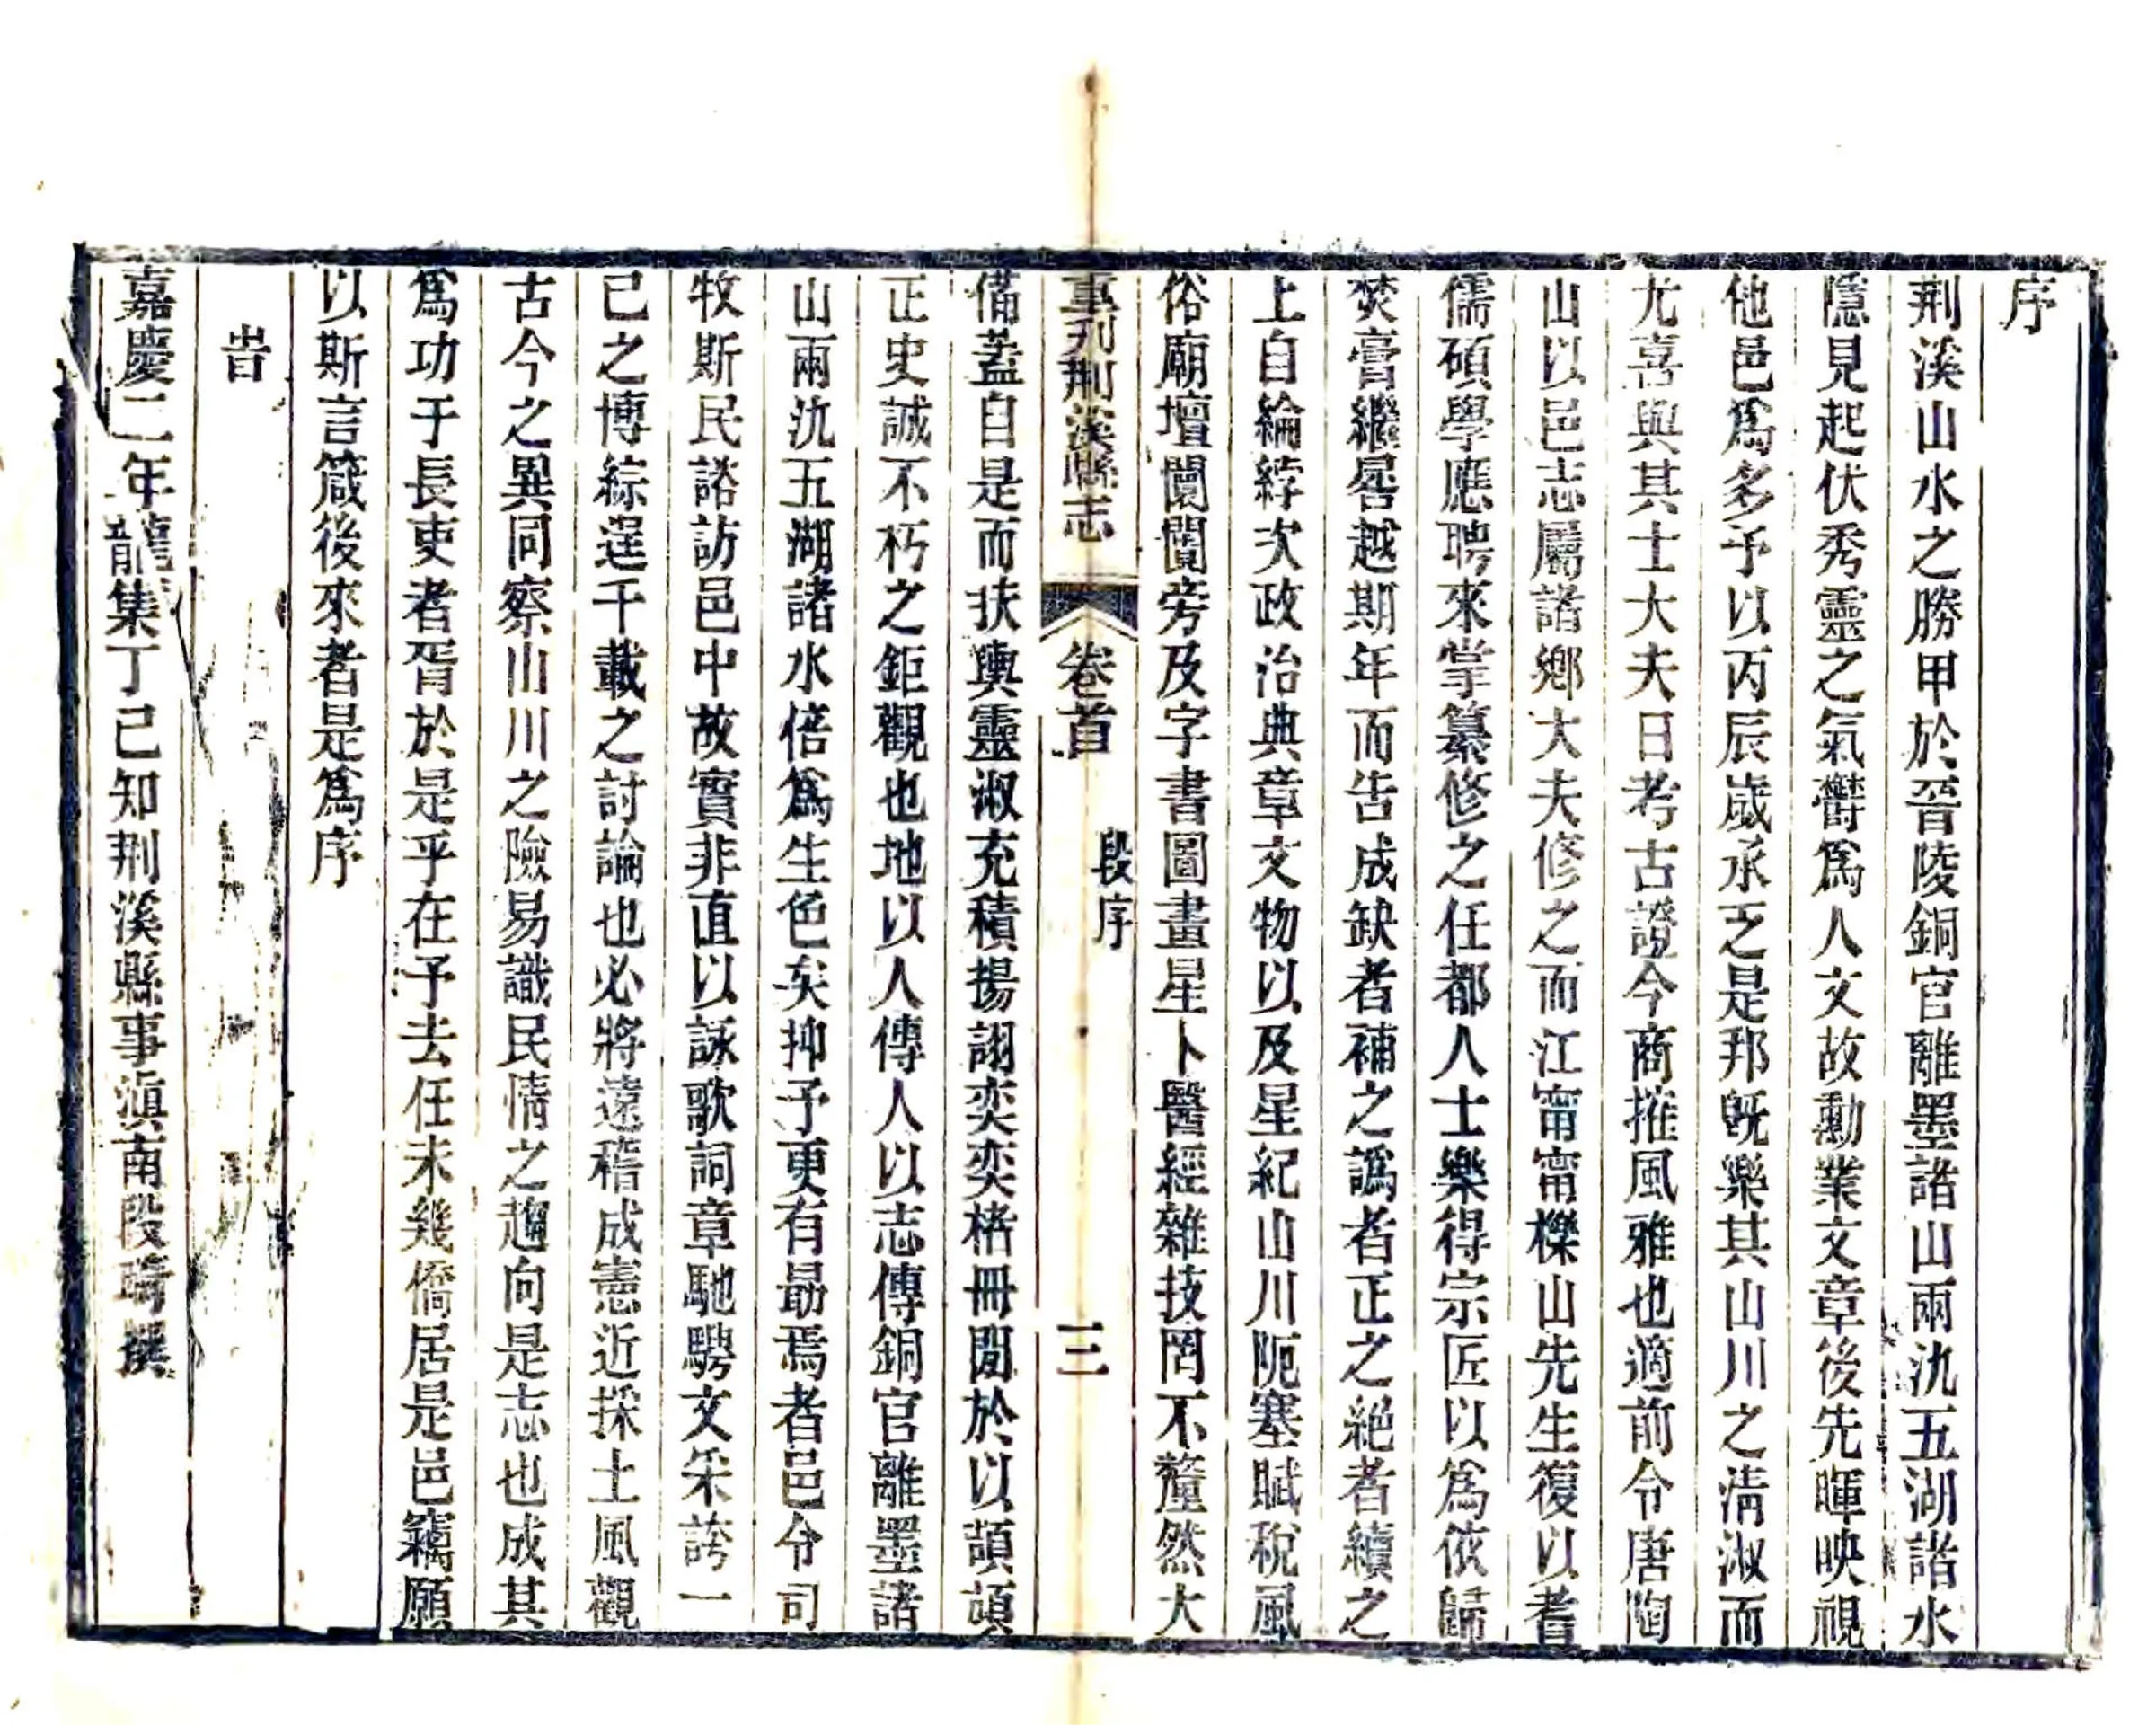 序
荆溪山水之勝甲於晉陵銅官離墨諸山兩氿五湖諸水
隱見起伏秀靈之氣欝爲人文故勳業文章後先暉映視
他邑爲多予以丙辰歲承乏是邦旣樂其山川之淸淑而
尤喜與其士大夫日考古證今商搉風雅也適前令唐陶
山以邑志屬諸鄉大夫修之而江甯甯櫟山先生復以耆
儒碩學應聘來掌纂修之任都人士樂得宗匠以爲依歸
焚膏繼晷越期年而告成缺者補之譌者正之絕者續之
上自綸綍次政治典章文物以及星紀山川阨塞賦稅風
俗廟壇闤闠旁及字書圖畫星卜醫經雜技罔不釐然大
重刋荆溪縣志
卷首
段序
三
備蓋自是而扶輿靈淑充積揚詡奕奕格冊閒於以頡頏
正史誠不朽之鉅觀也地以人傳人以志傳銅官離墨諸
山兩氿五湖諸水倍爲生色矣抑予更有勗焉者邑令司
牧斯民諮訪邑中故實非直以詠歌詞章馳騁文采誇一
己之博綜逞千載之討論也必將遠稽成憲近採土風觀
古今之異同察山川之險易識民情之趨向是志也成其
爲功于長吏者胥於是乎在予去任未幾僑居是邑竊願
以斯言箴後來者是爲序
旹
嘉慶二年龍集丁巳知荆溪縣事滇南段琦撰